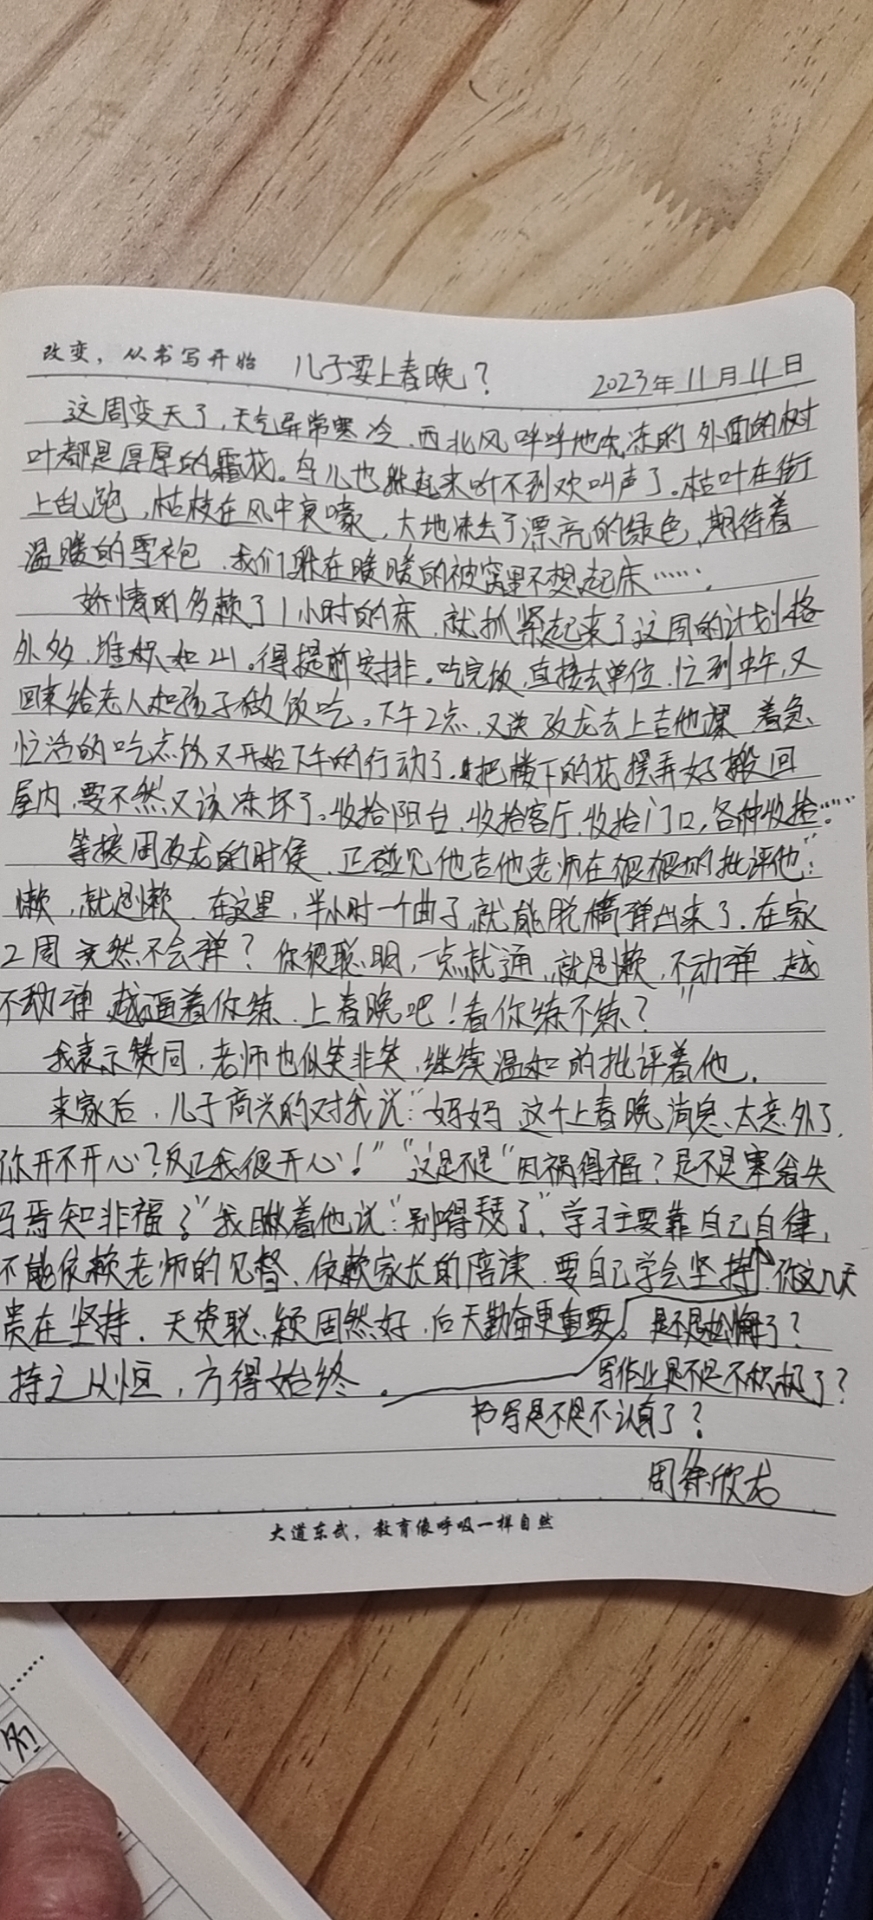 改变，从书写开始 儿子要上春晚？ 2023年11月11日
这周变天了，天气异常寒冷，西北风呼呼地 冻的外面的树
叶都是厚厚的霜花。鸟儿也躲起来听不到欢叫声了。枯叶在街
上乱跑，枯枝在风中哀嚎，大地 去了漂亮的绿色，期待着
温暖的雪袍，我们躲在暖暖的被窝里不想起床……
娇情的多赖了1小时的床，就抓紧起来了这周的计划格
外多，堆积如山。得提前安排。吃完饭，直接去单位，忙到中午，又
回来给老人和孩子做饭吃。下午2点，又送 龙去上吉他课 着急、
忙活的吃点饭又开始下午的行动了。把楼下的花摆弄好搬回
屋内，要不然又该冻坏了。收拾阳台，收拾客厅，收拾门口，各种收拾……
等接周 龙的时候，正碰见他吉他老师在狠狠的批评他：“
懒，就是懒，在这里，半小时一个曲子，就能脱稿弹出来了，在家
2周竟然不会弹？你很聪明，一点就通，就是懒，不动弹，越
不动弹，越逼着你练，上春晚吧！看你练不练？”
我表示赞同，老师也似笑非笑，继续温和的批评着他。
来家后，儿子高兴的对我说：“妈妈，这个上春晚消息，太意外了，
你开不开心？反正我很开心！”“这是不是“因祸得福？是不是塞翁失
马焉知非福？”我瞅着他说：“别嘚瑟了”，学习主要靠自己自律，
不能依赖老师的监督、依赖家长的陪读，要自己学会坚持，你这几天
贵在坚持，天资聪颖固然好，后天勤奋更重要。是不是松懈了？
持之从恒，方得始终。 写作业是不是不积极了？
书写是不是不认真了？
周徐欣龙
大道东武，教育像呼吸一样自然